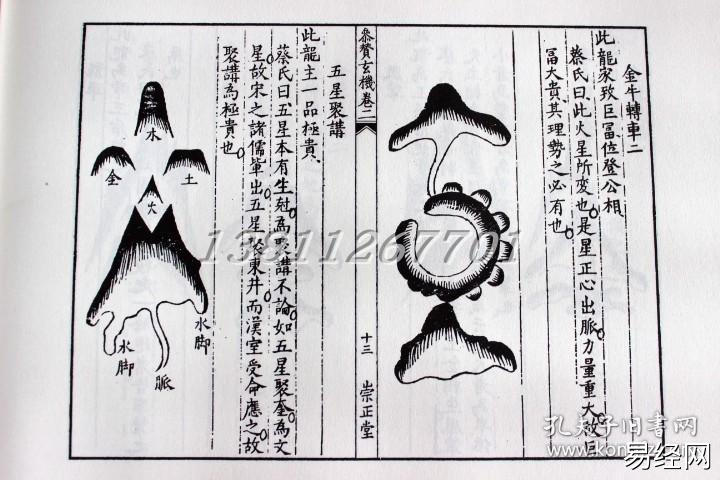 金牛轉車二
此龍家致巨冨位登公相
蔡氏曰此火星所変也是星正心出脈力量重大故曰
冨大貴其理勢之必有也
叅贊玄機卷二
十三
崇正堂
五星聚講
此龍主一品極貴
蔡氏曰五星本有生尅為聚講不論如五星聚奎為文
星故宋之諸儒軰出五星聚東井而漢室受命應之故
聚講為極貴也
木
金
土
火
水脚
水脚
脈
13911267701
孔夫子旧书网
易经网